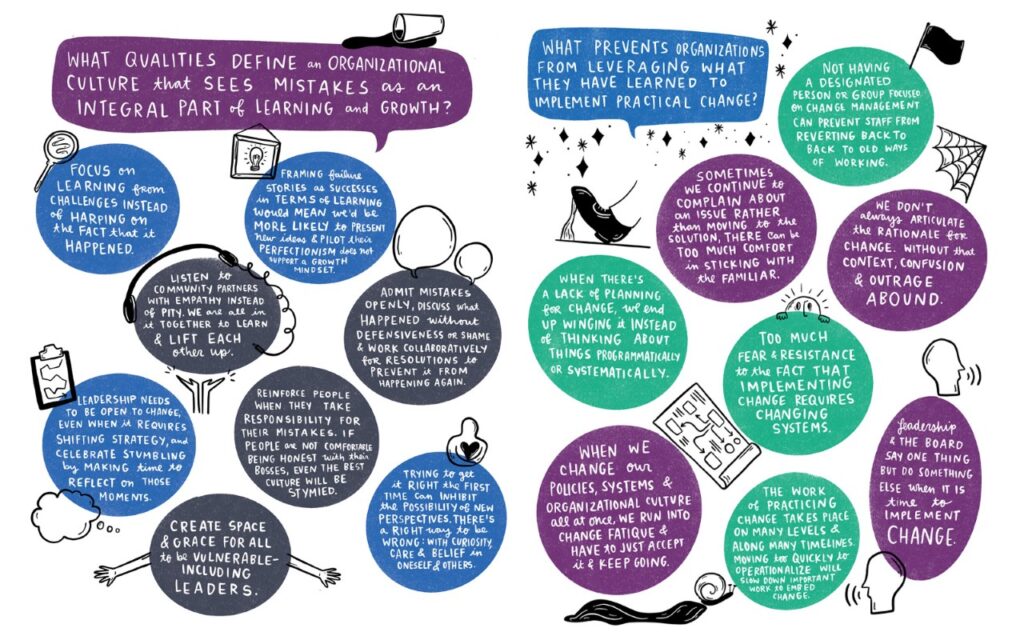 WHAT QUALITIES DEFINE an ORGANIZATIONAL
CULTURE that SEES MISTAKES as an
INTEGRAL PART of LEARNING and GROWTH?
FOCUS on
LEARNING from
CHALLENGES INSTEAD
of HARPING on
the FACT that it
HAPPENED.
FRAMING failure
STORIES as SUCCESSES
in TERMS of LEARNING
would MEAN we'd be
MORE LIKELY to PRESENT
new ideas & PILOT their
PERFECTIONISM does not
SUPPORT a GROWTH
MINDSET.
LISTEN to
COMMUNITY PARTNERS
WITH EMPATHY INSTEAD
of PITY. WE are all in
it TOGETHER to LEARN
& LIFT EACH
other up.
ADMIT MISTAKES
OPENLY, DISCUSS what
HAPPENED without
DEFENSIVENESS or SHAME
& WORK COLLABORATIVELY
for RESOLUTIONS to
PREVENT it FROM
HAPPENING AGAIN.
LEADERSHIP NEEDS
to BE OPEN to CHANGE,
EVEN WHEN it REQUIRES
SHIFTING STRATEGY, and
CELEBRATE STUMBLING
by MAKING time to
REFLECT on THOSE
MOMENTS.
REINFORCE PEOPLE
WHEN THEY TAKE
RESPONSIBILITY FOR
THEIR MISTAKES. IF
PEOPLE ARE NOT COMFORTABLE
BEING HONEST with their
BOSSES, EVEN THE BEST
CULTURE WILL BE
STYMIED.
TRYING to get
it RIGHT the FIRST
TIME CAN INHIBIT
the POSSIBILITY OF NEW
PERSPECTIVES. THERE'S
a RIGHT way to be
WRONG: WITH CURIOSITY,
CARE & BELIEF in
ONESELF & OTHERS.
CREATE SPACE
& GRACE FOR ALL
to be VULNERABLE-
INCLUDING
LEADERS.
WHAT PREVENTS ORGANIZATIONS
FROM LEVERAGING WHAT
THEY HAVE LEARNED to
IMPLEMENT PRACTICAL CHANGE?
NOT HAVING
A DESIGNATED
PERSON or GROUP FOCUSED
on CHANGE MANAGEMENT
CAN PREVENT STAFF FROM
REVERTING BACK TO
BACK TO OLD WAYS
OF WORKING.
SOMETIMES
WE CONTINUE to
COMPLAIN ABOUT
an ISSUE RATHER
than MOVING to the
SOLUTION, THERE CAN be
TOO MUCH COMFORT
in STICKING WITH
the FAMILIAR.
WE DON'T
always ARTICULATE
the RATIONALE for
CHANGE. WITHOUT that
CONTEXT, CONFUSION
& OUTRAGE
ABOUND.
WHEN THERE'S
A LACK of PLANNING
for CHANGE, WE END
UP WINGING it INSTEAD
of THINKING ABOUT
THINGS PROGRAMMATICALLY
OR SYSTEMATICALLY.
TOO MUCH
FEAR & RESISTANCE
to the FACT THAT
IMPLEMENTING
CHANGE REQUIRES
CHANGING
SYSTEMS.
WHEN WE
CHANGE our
POLICIES, SYSTEMS &
ORGANIZATIONAL CULTURE
all at once, WE RUN INTO
CHANGE FATIGUE &
HAVE to JUST ACCEPT
it & KEEP GOING.
THE WORK
of PRACTICING
CHANGE TAKES PLACE
ON MANY LEVELS &
ALONG MANY TIMELINES.
MOVING too QUICKLY to
OPERATIONALIZE WILL
SLOW DOWN IMPORTANT
WORK to EMBED
CHANGE.
leadership
& THE BOARD
SAY ONE THING
BUT DO SOMETHING
ELSE when IT IS
time to
IMPLEMENT
CHANGE.